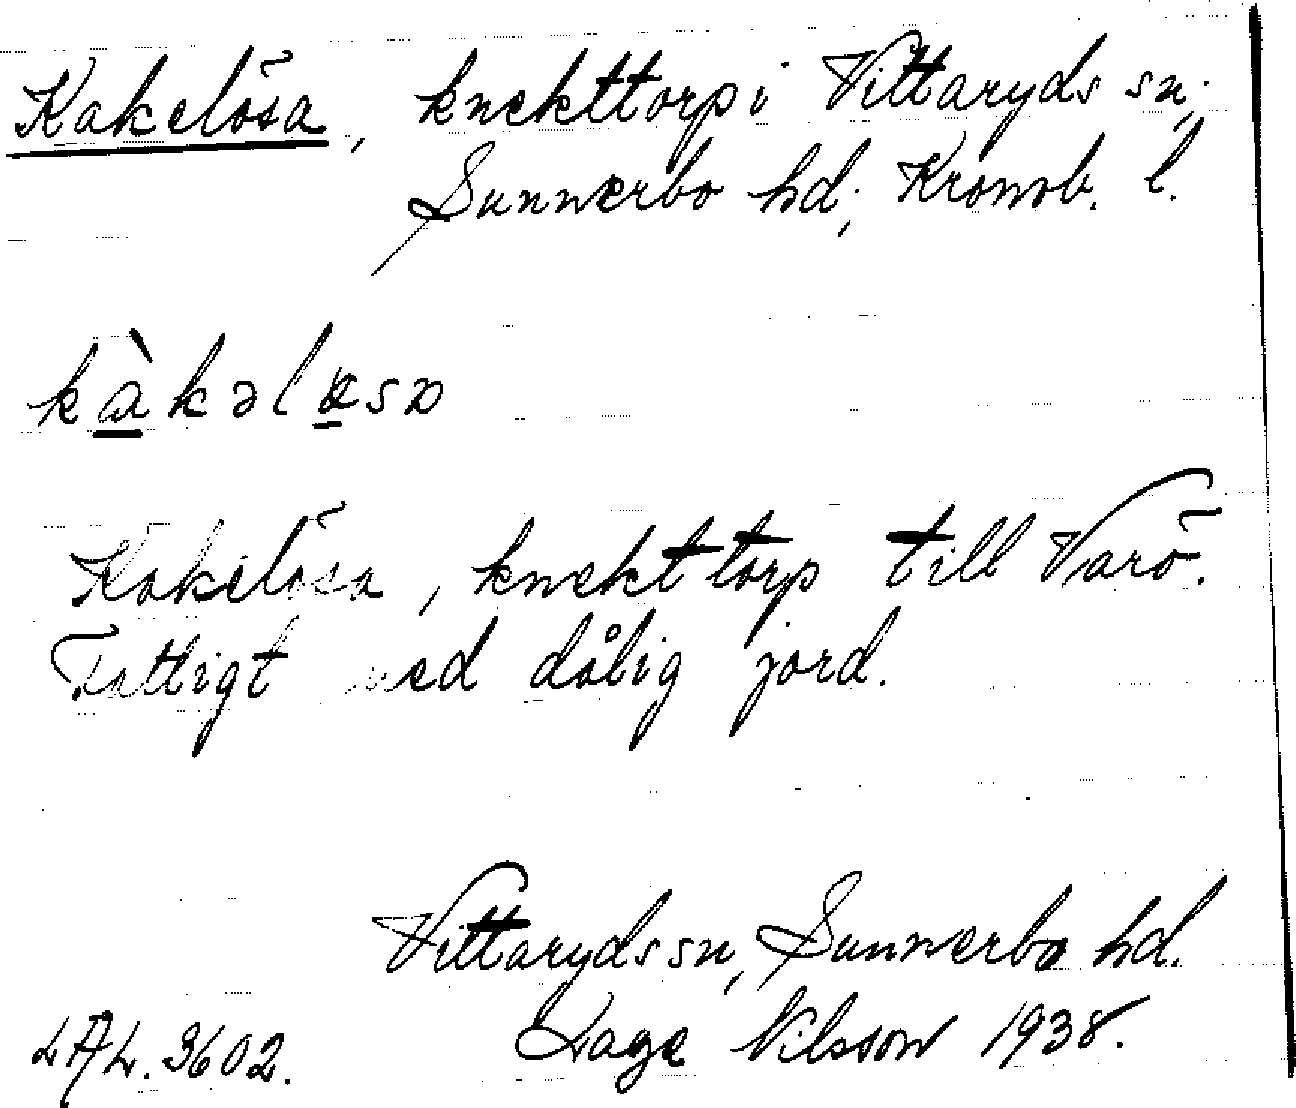 Kakelösa, knekttorp i Vittaryds sn,
Sunnerbo hd, Kronob. l.
kàkəløsa
Kakelösa, knekttorp till Varö.
Fattigt med dålig jord.
Vittaryds sn, Sunnerbo hd.
LAL. 3602. Lage Nilsson 1938.